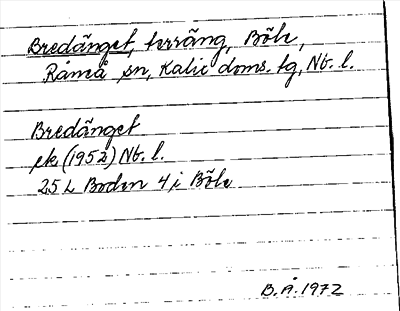 Bredänget, terräng, Böle,
Råneå sn, Kalix doms. tg, Nb. l.
Bredänget
ek (1952) Nb. l.
25 L Boden 4 i Böle
B. Å. 1972